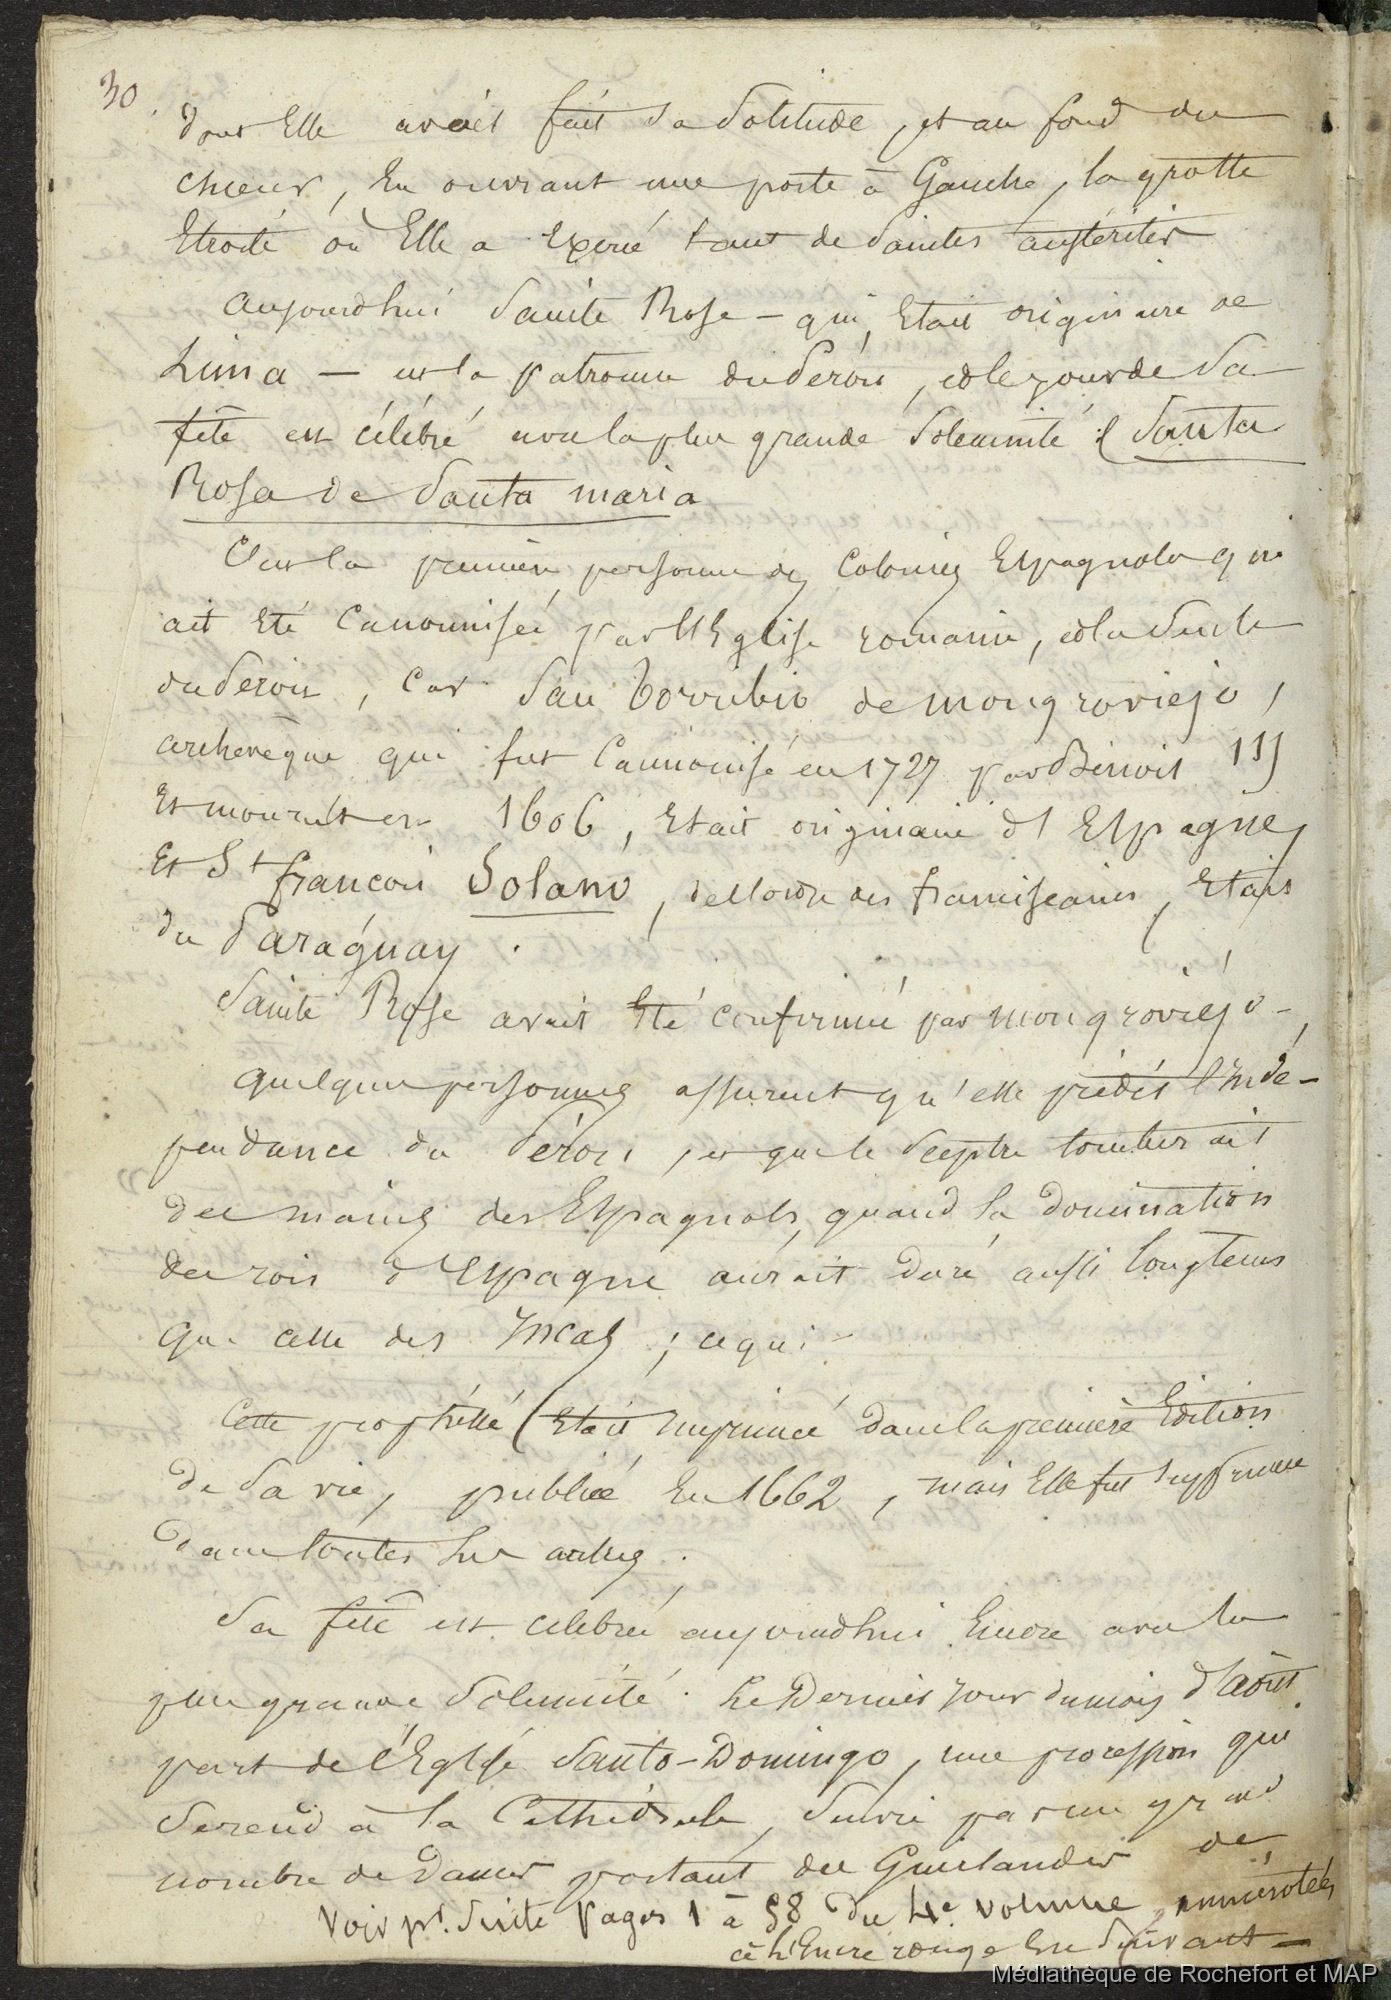 30
dont Elle avait fait sa solitude, et au fond du
choeur, En ouvrant une porte à Gauche, la grotte
Etroite où Elle a Exercé tant de saintes austérités
aujourdhui Sainte Rose - qui Etait originaire de
Lima - est la patronne du Pérou, et le jour de sa
fête est célébré avec la plus grande solemnité (Santa
Rosa de Santa maria
C'est la première personne des Colonies Espagnoles qui
ait Eté Canonnisée par l'Eglise romaine, et la seule
du Pérou, Car San Torribio de mongroviejo,
archevêque qui fut Cannonisé en 1727 par Benoit
Et mourut en 1606, Etait originaire d'Espagne,
Et St françois Solano, de l'ordre des franciscains, Etait
du Paraguay.
Sainte Rose avait Eté confirmée par mongroviejo -,
quelques personnes assurent qu'elle prédit l'Inde-
pendance du Pérou, et que le Sceptre tomberait
des mains des Espagnols, quand la domination
des rois d'Espagne aurait duré aussi longtems
que celle des Incas ; ce qui -
Cette prophétie (Etait Imprimée dans la première Edition
de sa vie, publiée En 1662, mais Elle fut supprimée
dans toutes les autres.
Sa fête est célébrée aujourdhui Encore avec la
plus grande solemnité. Le Dernier jour du mois d'août
part de l'Eglise Santo-Domingo, une procession qui
se rend à la Cathédrale, suivie par un grand
nombre de Dames portant des Guirlandes de
Voir pr. suite Pages 1 à 58 du 4e. volume, numérotées
à l'Encre rouge En suivant -
Médiathèque de Rochefort et MAP